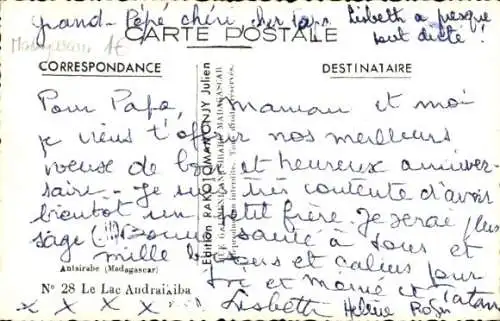 Grand-Pépé chéri cher Papa Lisbeth a presque
tout dicté !
Madagascar 1€
CARTE POSTALE
CORRESPONDANCE
DESTINATAIRE
Pour Papa, Maman et moi
je viens t'offrir nos meilleurs
voeux de bon et heureux anniver-
saire - Je suis très contente d'avoir
bientôt un petit frère. Je serai plus
sage (!) Bonne santé à tous et
mille baisers et calins pour
toi et mamie et tatan
Lisbeth Hélène Roger
x x x x
Edition RAKOTOMANONJY Julien
Reproduction interdites. Tous droits réservés.
Antsirabe (Madagascar)
N° 28 Le Lac Andraikiba